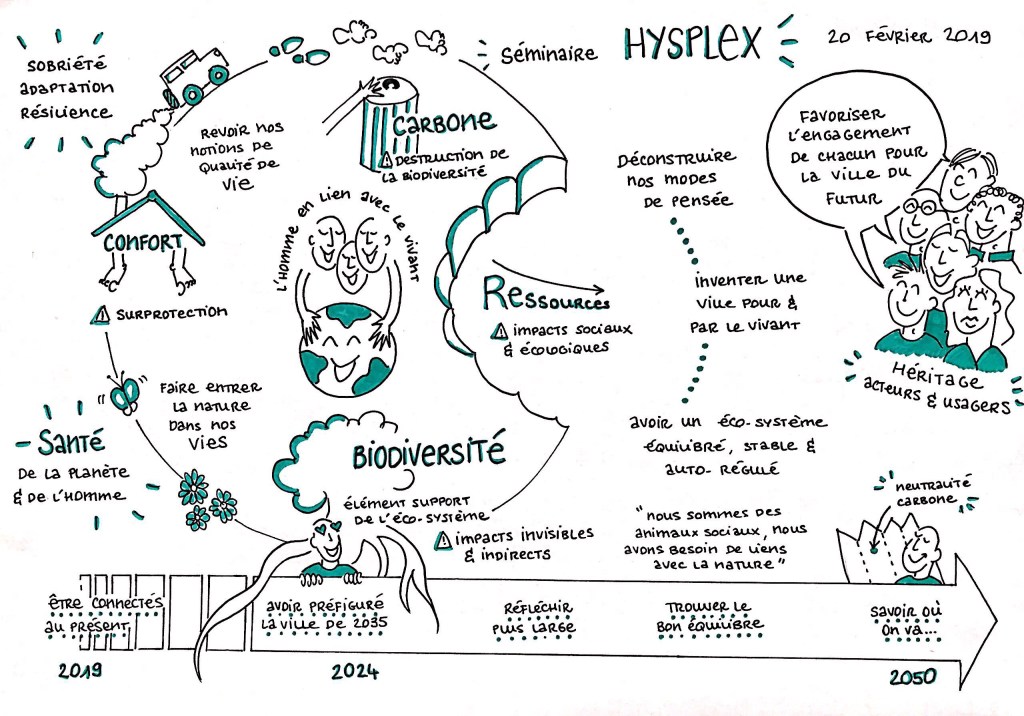 Séminaire HYSPLEX
20 FÉVRIER 2019
SOBRIÉTÉ
ADAPTATION
RÉSILIENCE
REVOIR NOS
NOTIONS DE
QUALITÉ DE
VIE
CARBONE
⚠ DESTRUCTION DE
LA BIODIVERSITÉ
CONFORT
⚠ SURPROTECTION
L'HOMME EN LIEN AVEC LE VIVANT
RESSOURCES
⚠ IMPACTS SOCIAUX
& ÉCOLOGIQUES
DÉCONSTRUIRE
NOS MODES
DE PENSÉE
INVENTER UNE
VILLE POUR &
PAR LE VIVANT
AVOIR UN ÉCO-SYSTÈME
ÉQUILIBRÉ, STABLE &
AUTO-RÉGULÉ
FAVORISER
L'ENGAGEMENT
DE CHACUN POUR
LA VILLE DU
FUTUR
HÉRITAGE
ACTEURS & USAGERS
FAIRE ENTRER
LA NATURE
DANS NOS
VIES
SANTÉ
DE LA PLANÈTE
& DE L'HOMME
BIODIVERSITÉ
ÉLÉMENT SUPPORT
DE L'ÉCO-SYSTÈME
⚠ IMPACTS INVISIBLES
& INDIRECTS
"NOUS SOMMES DES
ANIMAUX SOCIAUX, NOUS
AVONS BESOIN DE LIENS
AVEC LA NATURE"
NEUTRALITÉ
CARBONE
ÊTRE CONNECTÉS
AU PRÉSENT
AVOIR PRÉFIGURÉ
LA VILLE DE 2035
RÉFLÉCHIR
PLUS LARGE
TROUVER LE
BON ÉQUILIBRE
SAVOIR OÙ
ON VA...
2019
2024
2050